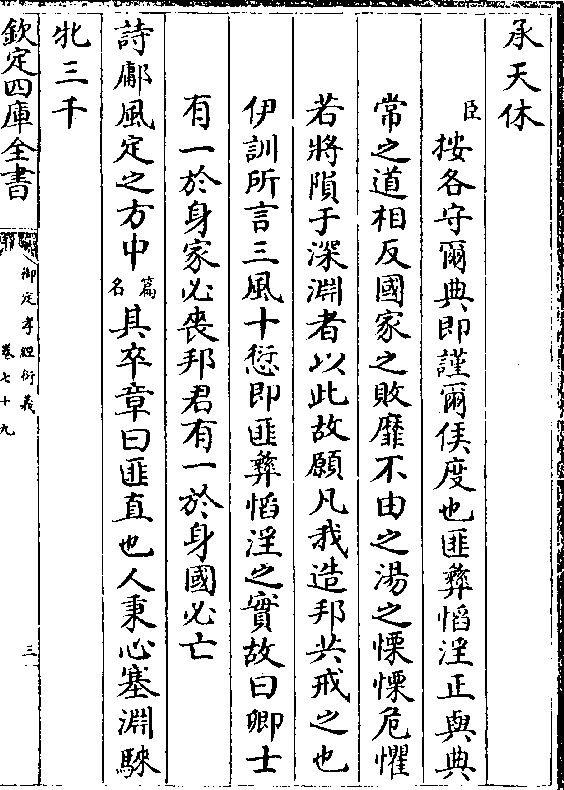 承天休
臣按各守爾典即謹爾侯度也匪彝慆淫正與典
常之道相反國家之敗靡不由之湯之慄慄危懼
若將隕于深淵者以此故願凡我造邦共戒之也
伊訓所言三風十愆即匪彝慆淫之實故曰卿士
有一於身家必喪邦君有一於身國必亡
詩鄘風定之方中篇名其卒章曰匪直也人秉心塞淵騋
牝三千
欽定四庫全書
御定孝經衍義
卷七十九
三